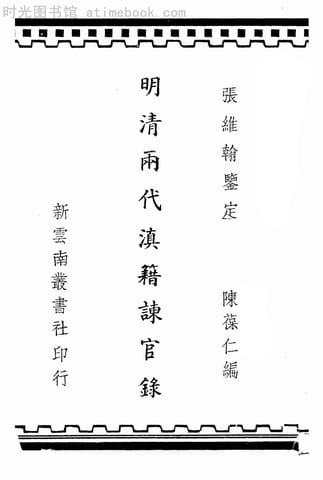 时光图书馆 atimebook.com
張維翰鑒定
陳葆仁編
明清兩代滇籍諫官錄
新雲南叢書社印行